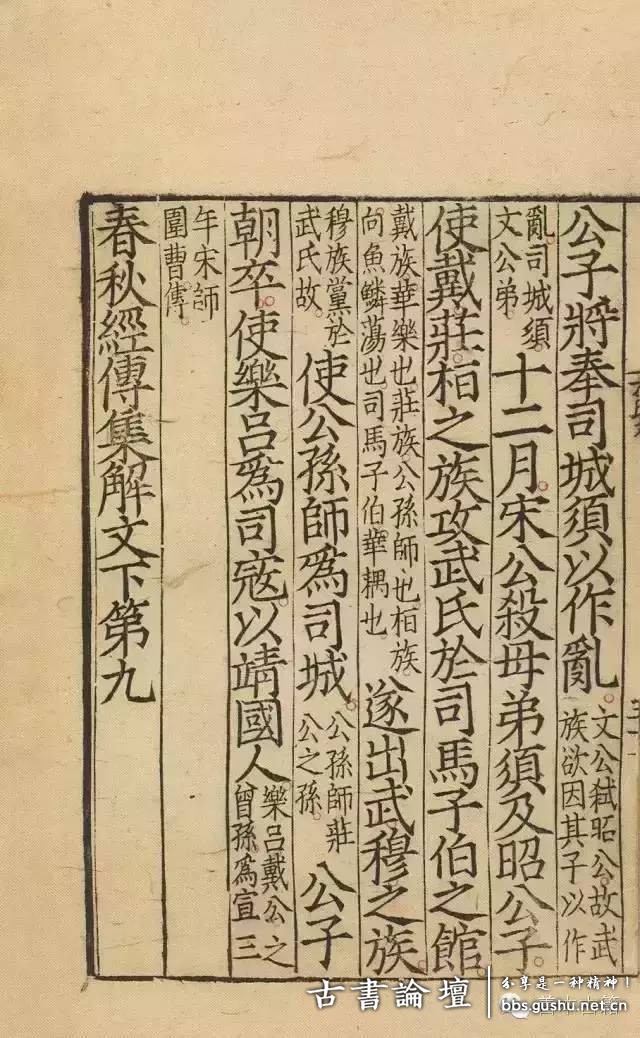 公子將奉司城須以作亂文公弑昭公故武
族欲因其子以作
亂司城須
文公弟十二月宋公殺母弟須及昭公子
使戴莊桓之族攻武氏於司馬子伯之館
戴族華樂也莊族公孫師也桓族
向魚鱗蕩也司馬子伯華耦也遂出武穆之族
穆族黨於
武氏故使公孫師為司城公孫師莊
公之孫公子
朝卒使樂呂為司寇以靖國人樂呂戴公之
曾孫為宣三
午宋師
圍曹傳
春秋經傳集解文下第九
古書論壇
分享是一种精神!
bbs.gushu.net.cn